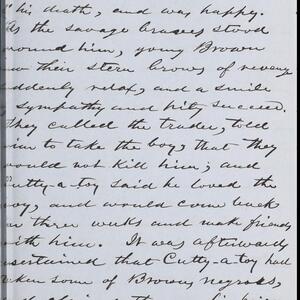 his death, and was happy.
As the savage braves stood
around him, young Brown
saw their stern brows of revenge
suddenly relax, and a smile
of sympathy and pity succeed.
They called the trader, told
him to take the boy, that they
would not kill him; and
Cutty-a-toy said he loved the
boy, and would come back
in three weeks and make friends
with him. It was afterwards
ascertained that Cutty-a-toy had
taken some of Brown's negroes,